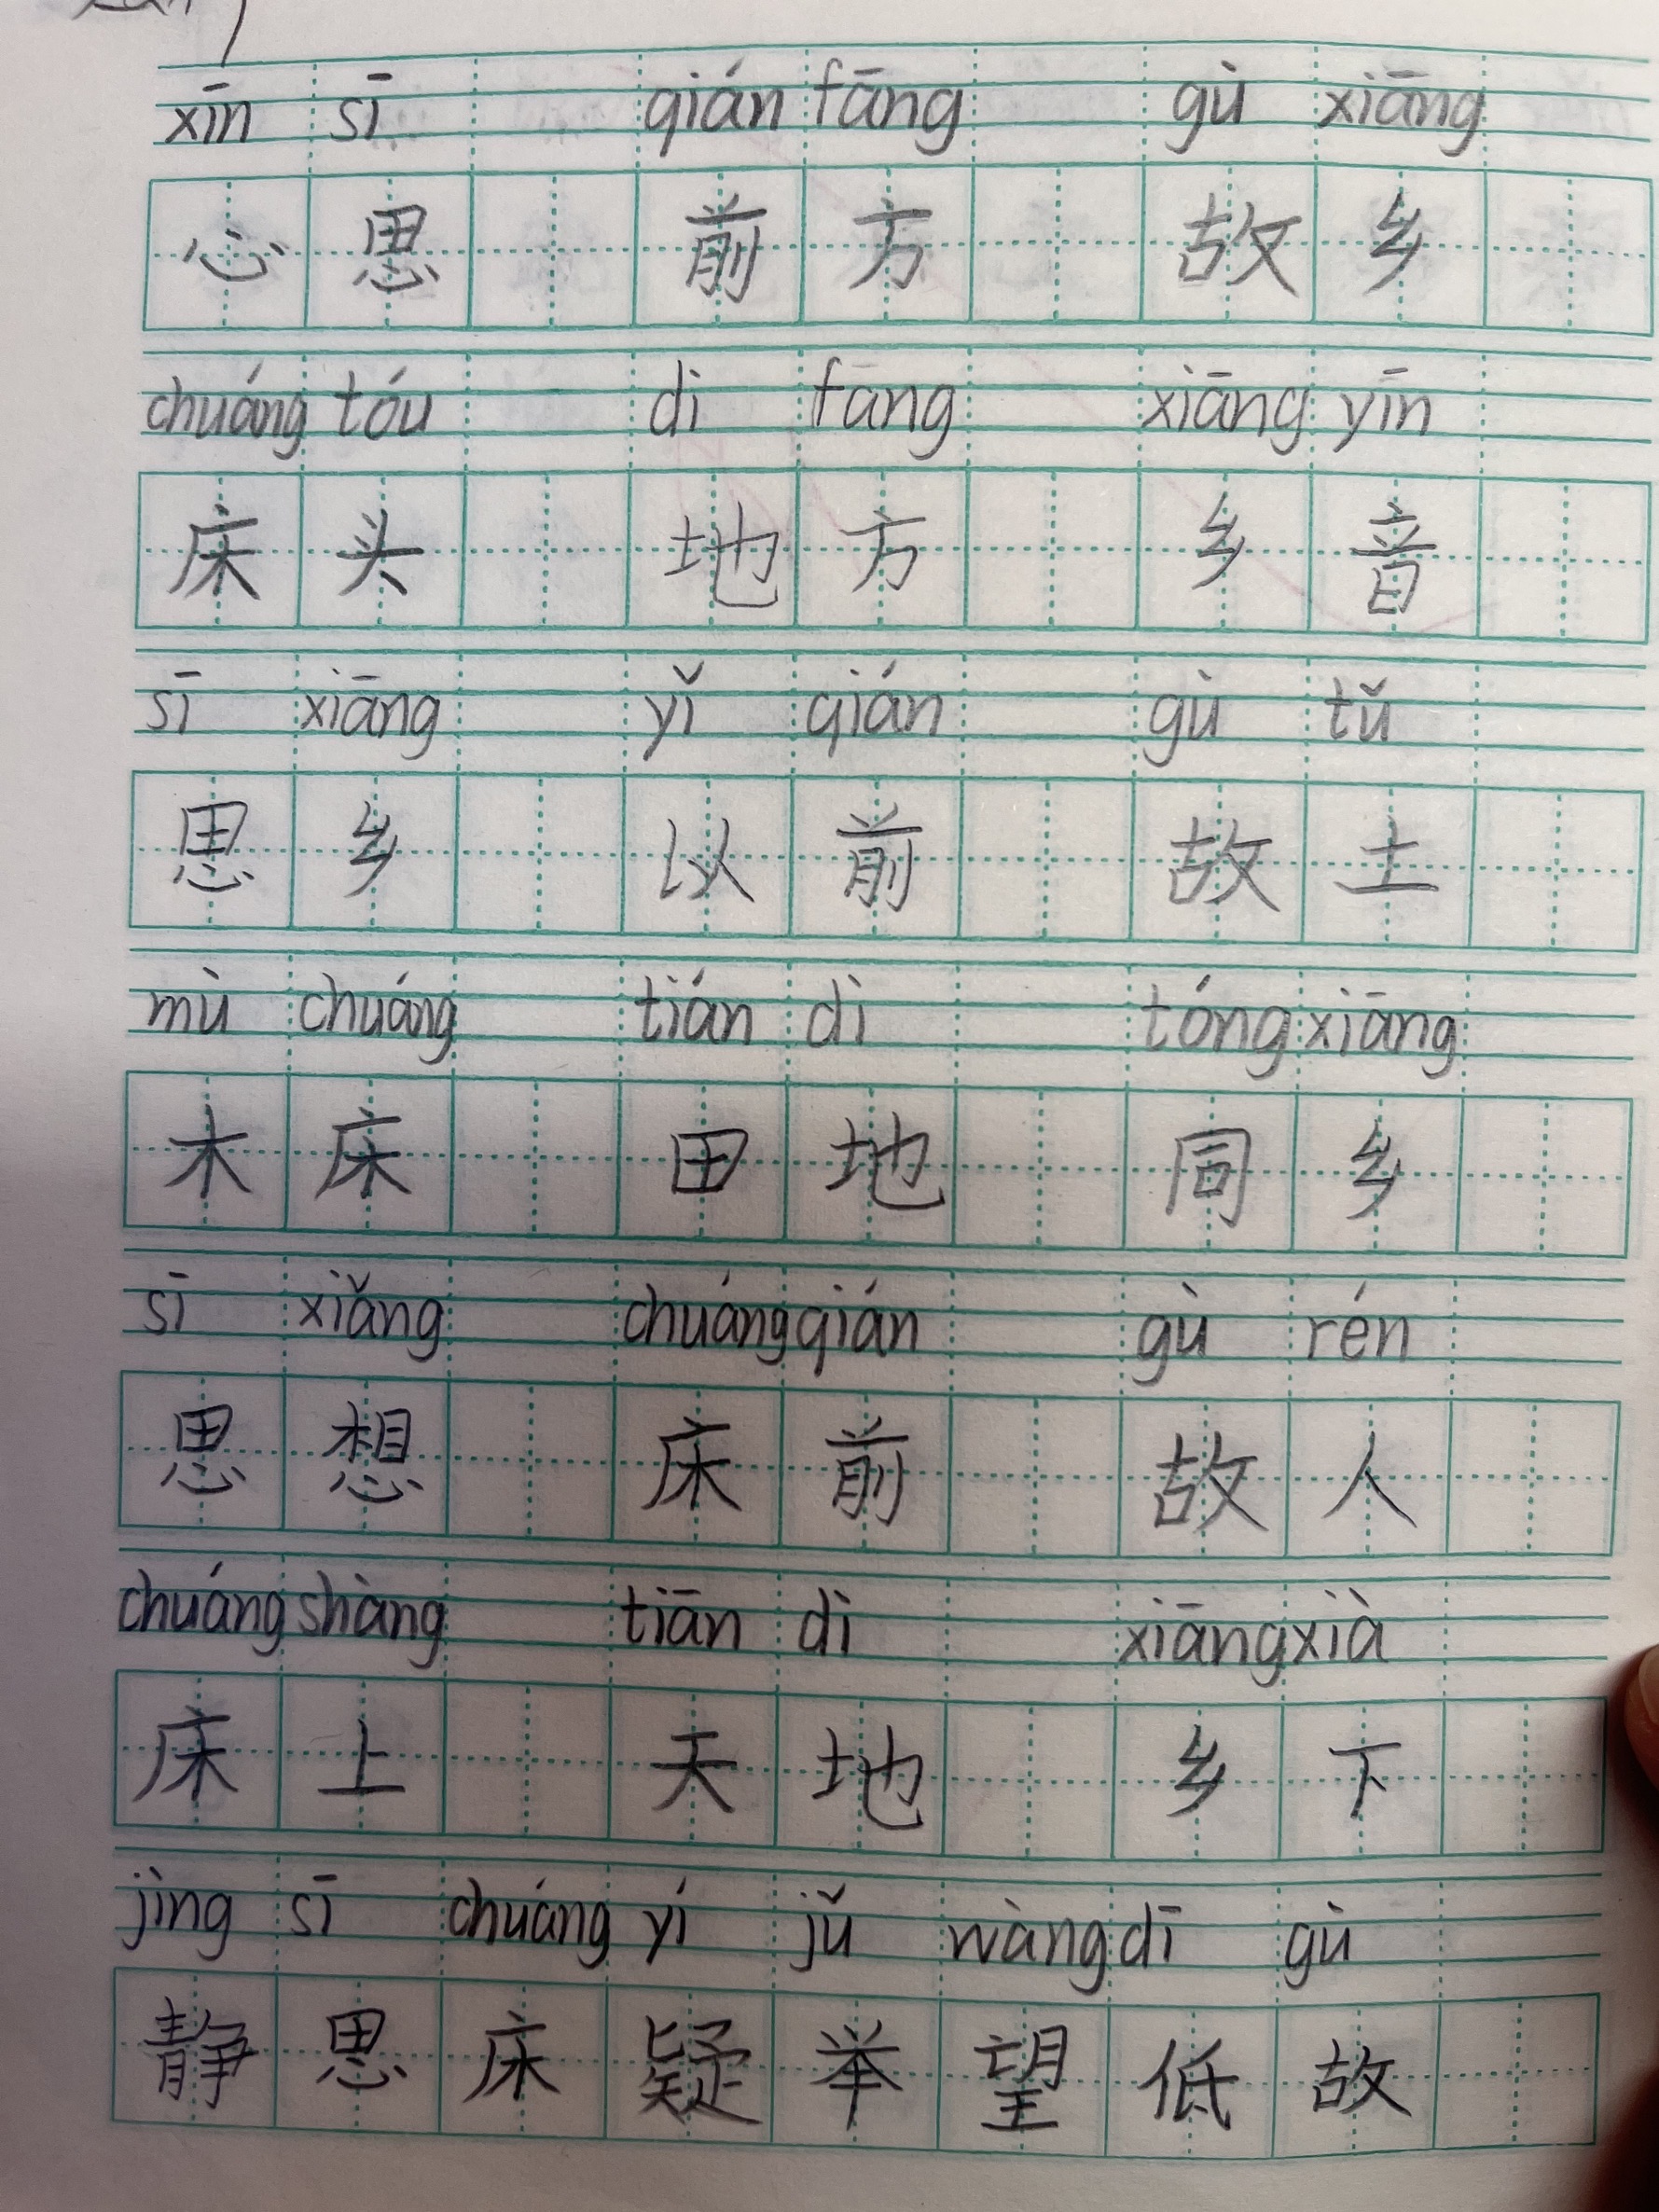 xīn sī qián fāng gù xiāng
心思 前方 故乡
chuáng tóu dì fāng xiāng yīn
床头 地方 乡音
sī xiāng yǐ qián gù tǔ
思乡 以前 故土
mù chuáng tián dì tóng xiāng
木床 田地 同乡
sī xiǎng chuáng qián gù rén
思想 床前 故人
chuáng shàng tiān dì xiāng xià
床上 天地 乡下
jìng sī chuáng yí jǔ wàng dī gù
静思床疑举望低故